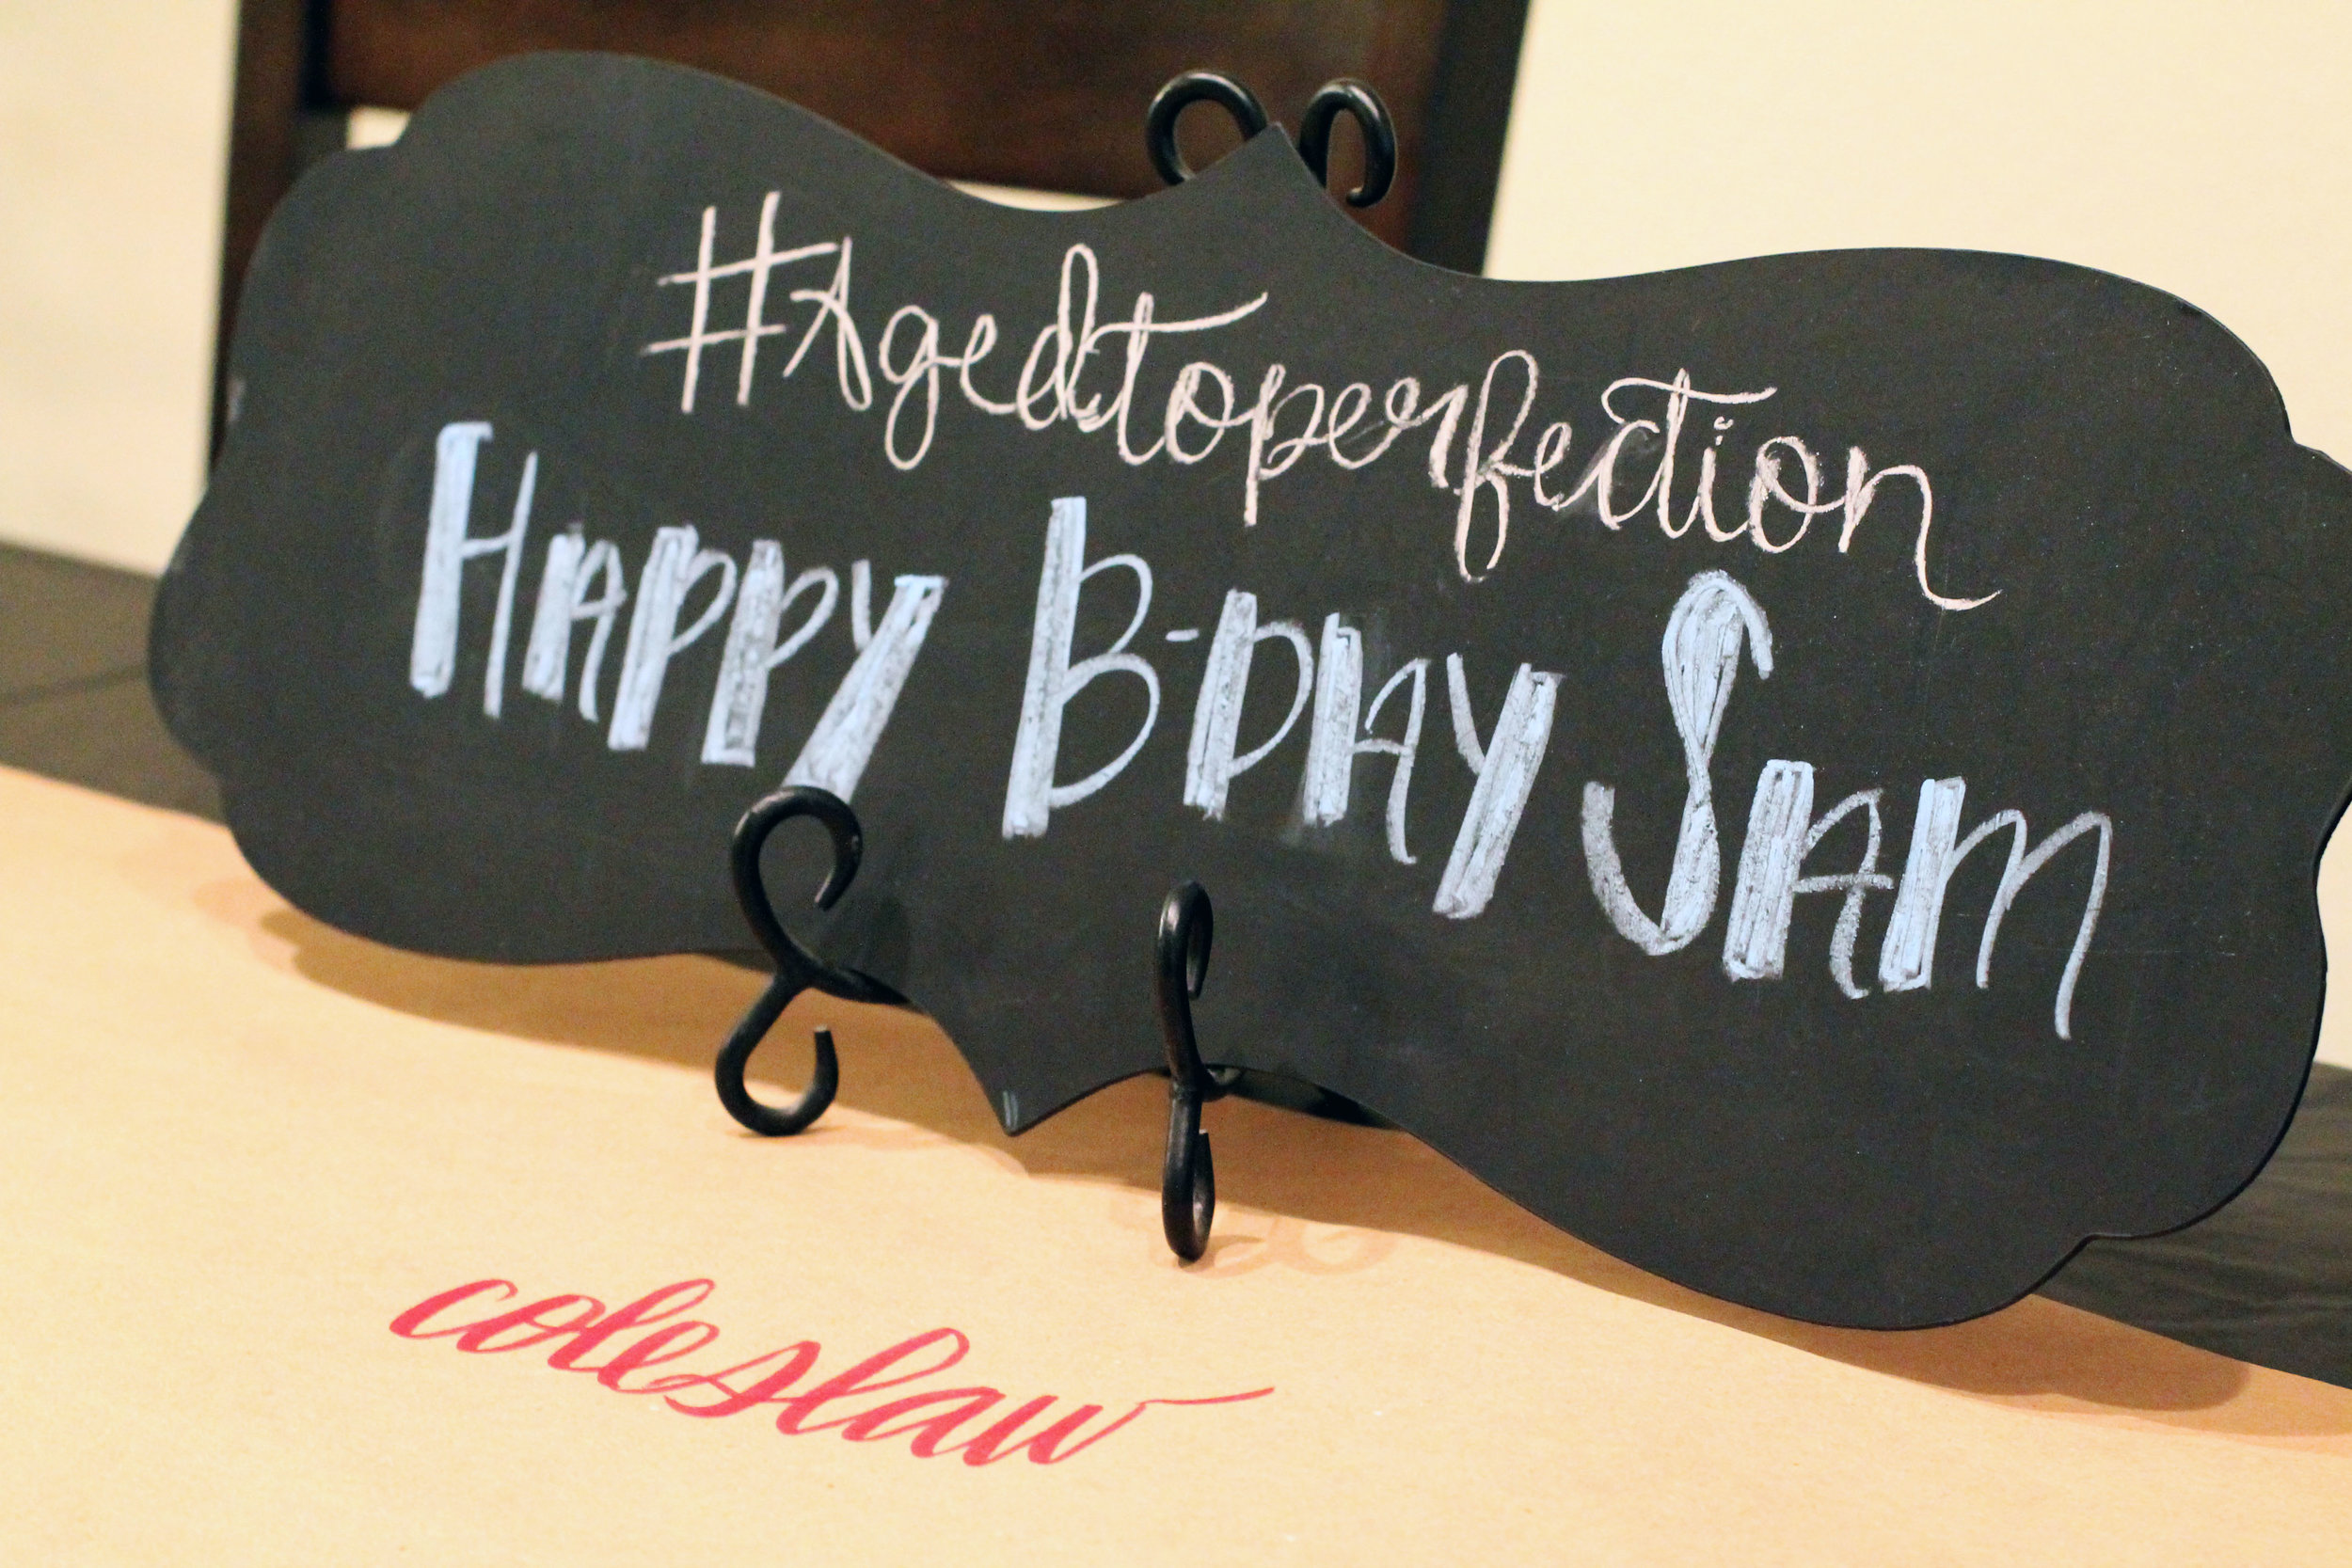 #Agedtoperfection
HAPPY B-DAY SAM
coleslaw